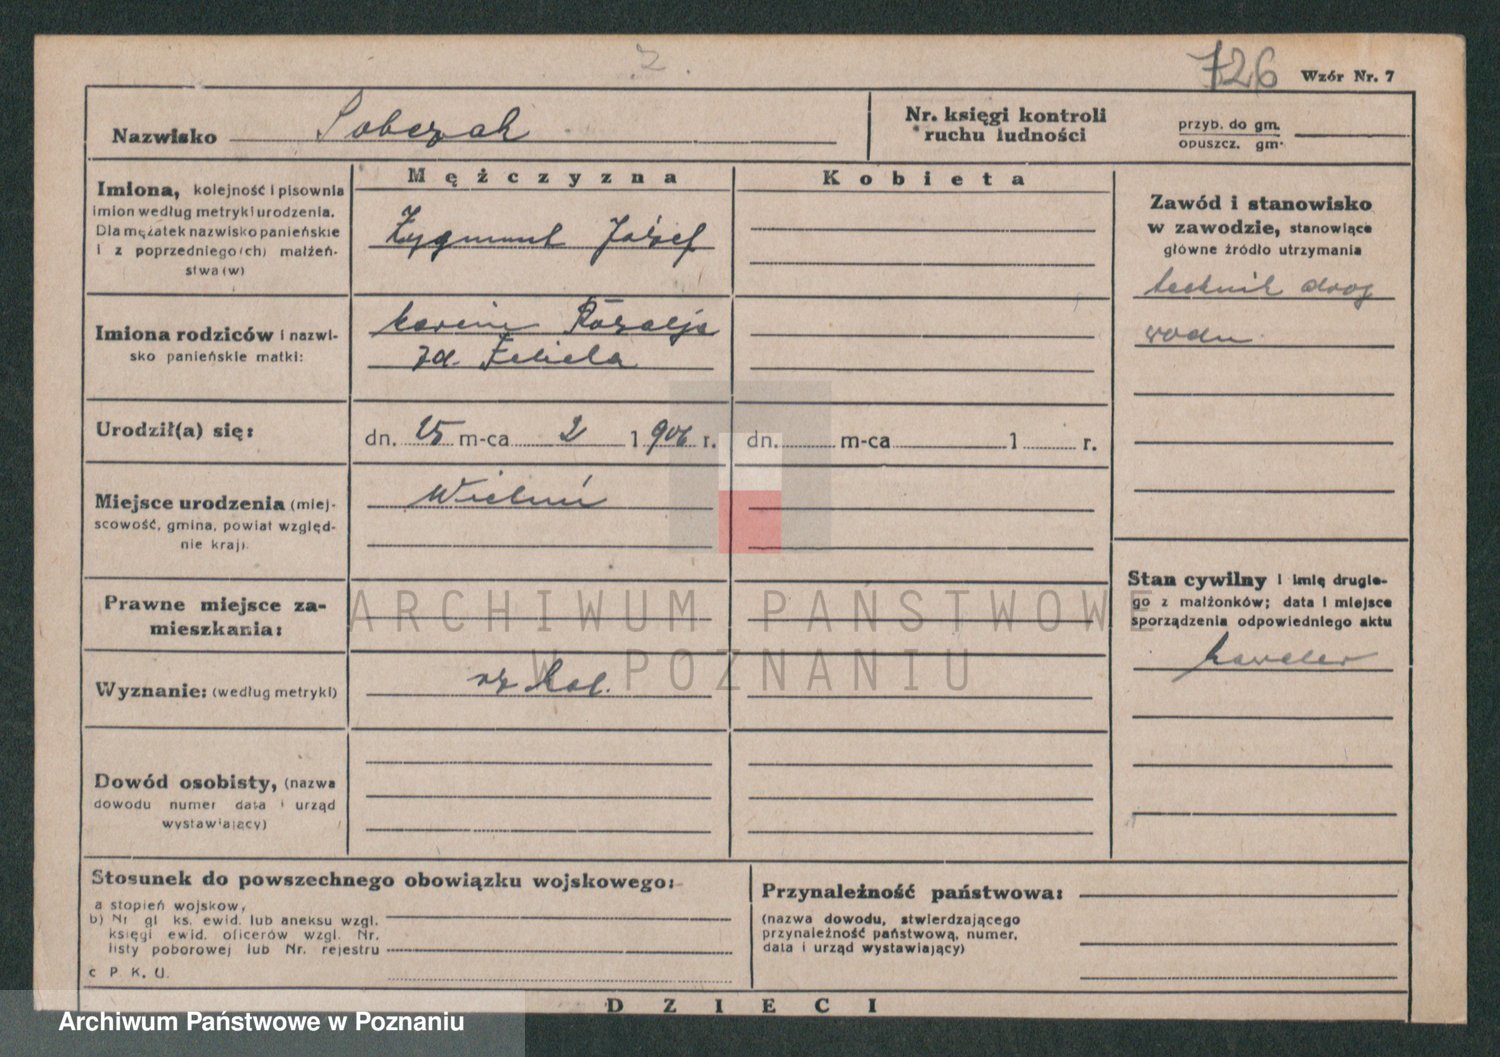 726 Wzór Nr. 7
Nazwisko Sobczak
Nr. księgi kontroli
ruchu ludności
przyb. do gm.
opuszcz. gm.
Imiona, kolejność i pisownia
imion według metryki urodzenia.
Dla mężatek nazwisko panieńskie
i z poprzedniego(ch) małżeń-
stwa(w)
Mężczyzna
Zygmunt Józef
Kobieta
Zawód i stanowisko
w zawodzie, stanowiące
główne źródło utrzymania
technik drog
wodn
Imiona rodziców i nazwi-
sko panieńskie matki:
Rozalja
zd.
Urodził(a) się:
dn. 25 m-ca 2 1906 r.
dn. m-ca 1 r.
Miejsce urodzenia (miej-
scowość, gmina, powiat względ-
nie kraj).
Wieluń
Prawne miejsce za-
mieszkania:
Stan cywilny i imię drugie-
go z małżonków; data i miejsce
sporządzenia odpowiedniego aktu
kawaler
Wyznanie: (według metryki)
rz kat.
Dowód osobisty, (nazwa
dowodu numer data i urząd
wystawiający)
Stosunek do powszechnego obowiązku wojskowego:
a stopień wojskow,
b) Nr gł ks. ewid. lub aneksu wzgl.
księgi ewid. oficerów wzgl. Nr.
listy poborowej lub Nr. rejestru
c P. K. U.
Przynależność państwowa:
(nazwa dowodu, stwierdzającego
przynależność państwową, numer,
data i urząd wystawiający)
DZIECI
ARCHIWUM PAŃSTWOWE
W POZNANIU
Archiwum Państwowe w Poznaniu